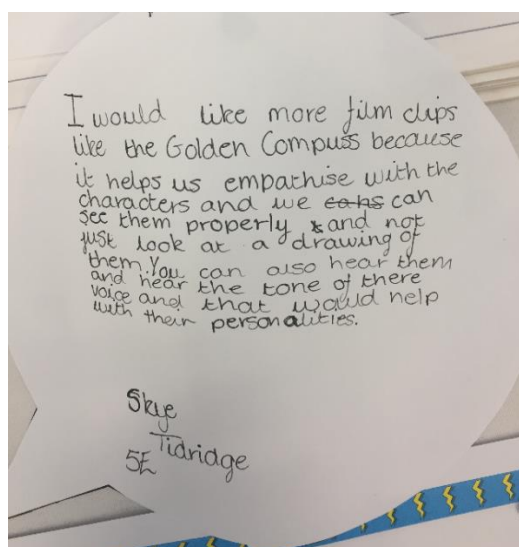 I would like more film clips
like the Golden Compuss because
it helps us empathise with the
characters and we cans can
see them properly & and not
just look at a drawing of
them. You can also hear them
and hear the tone of there
voice and that would help
with their personalities.
Skye
Tidridge
5E